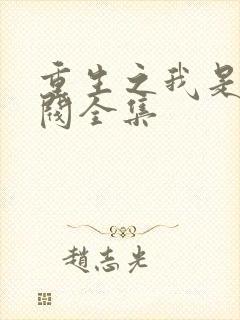 重生之我是
阀全集
趙志光